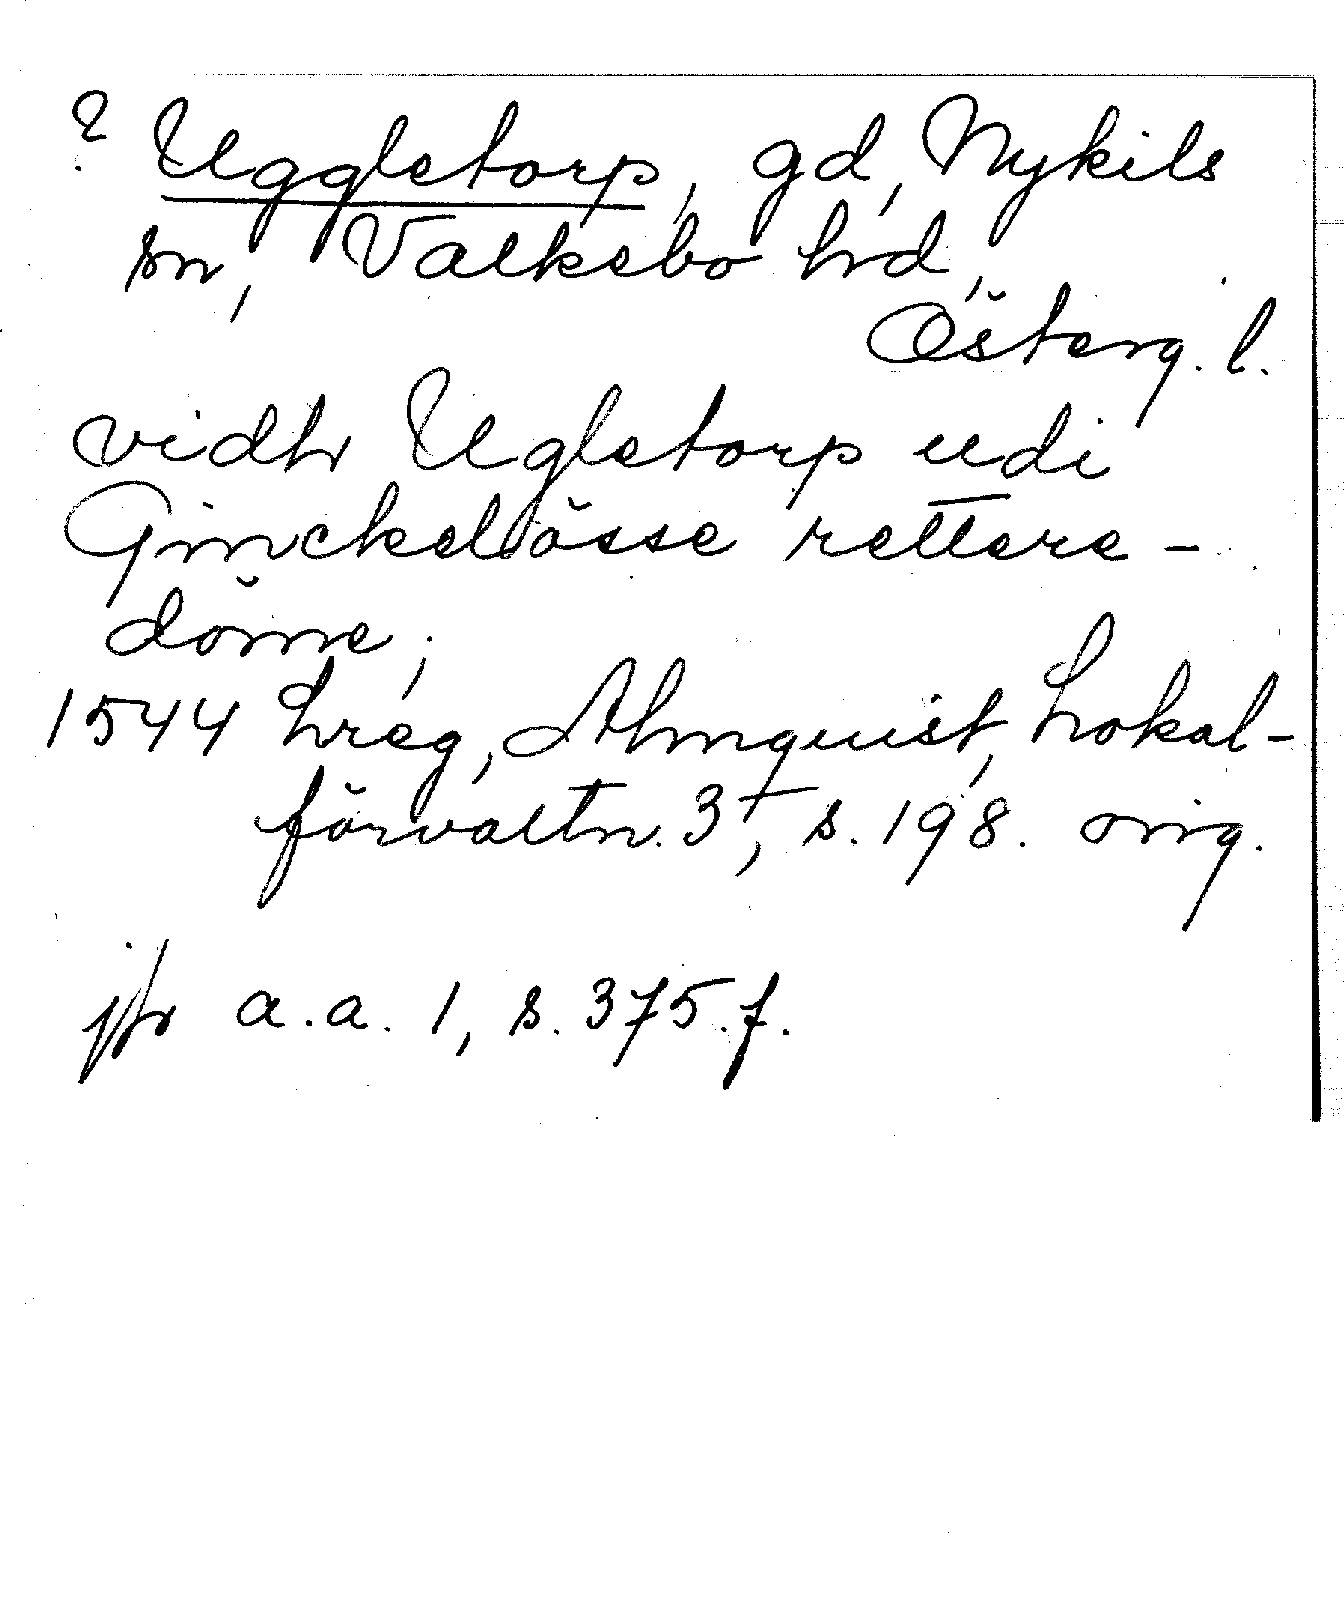 ? Uggletorp, gd, Nykils
sn, Valkebo hrd,
Österg. l.
vidh Ugletorp udi
Ginckelösse rettere-
döme;
1544 Lreg, Almquist, Lokal-
förvaltn. 3, s. 198. orig.
jfr a.a. 1, s. 375.f.